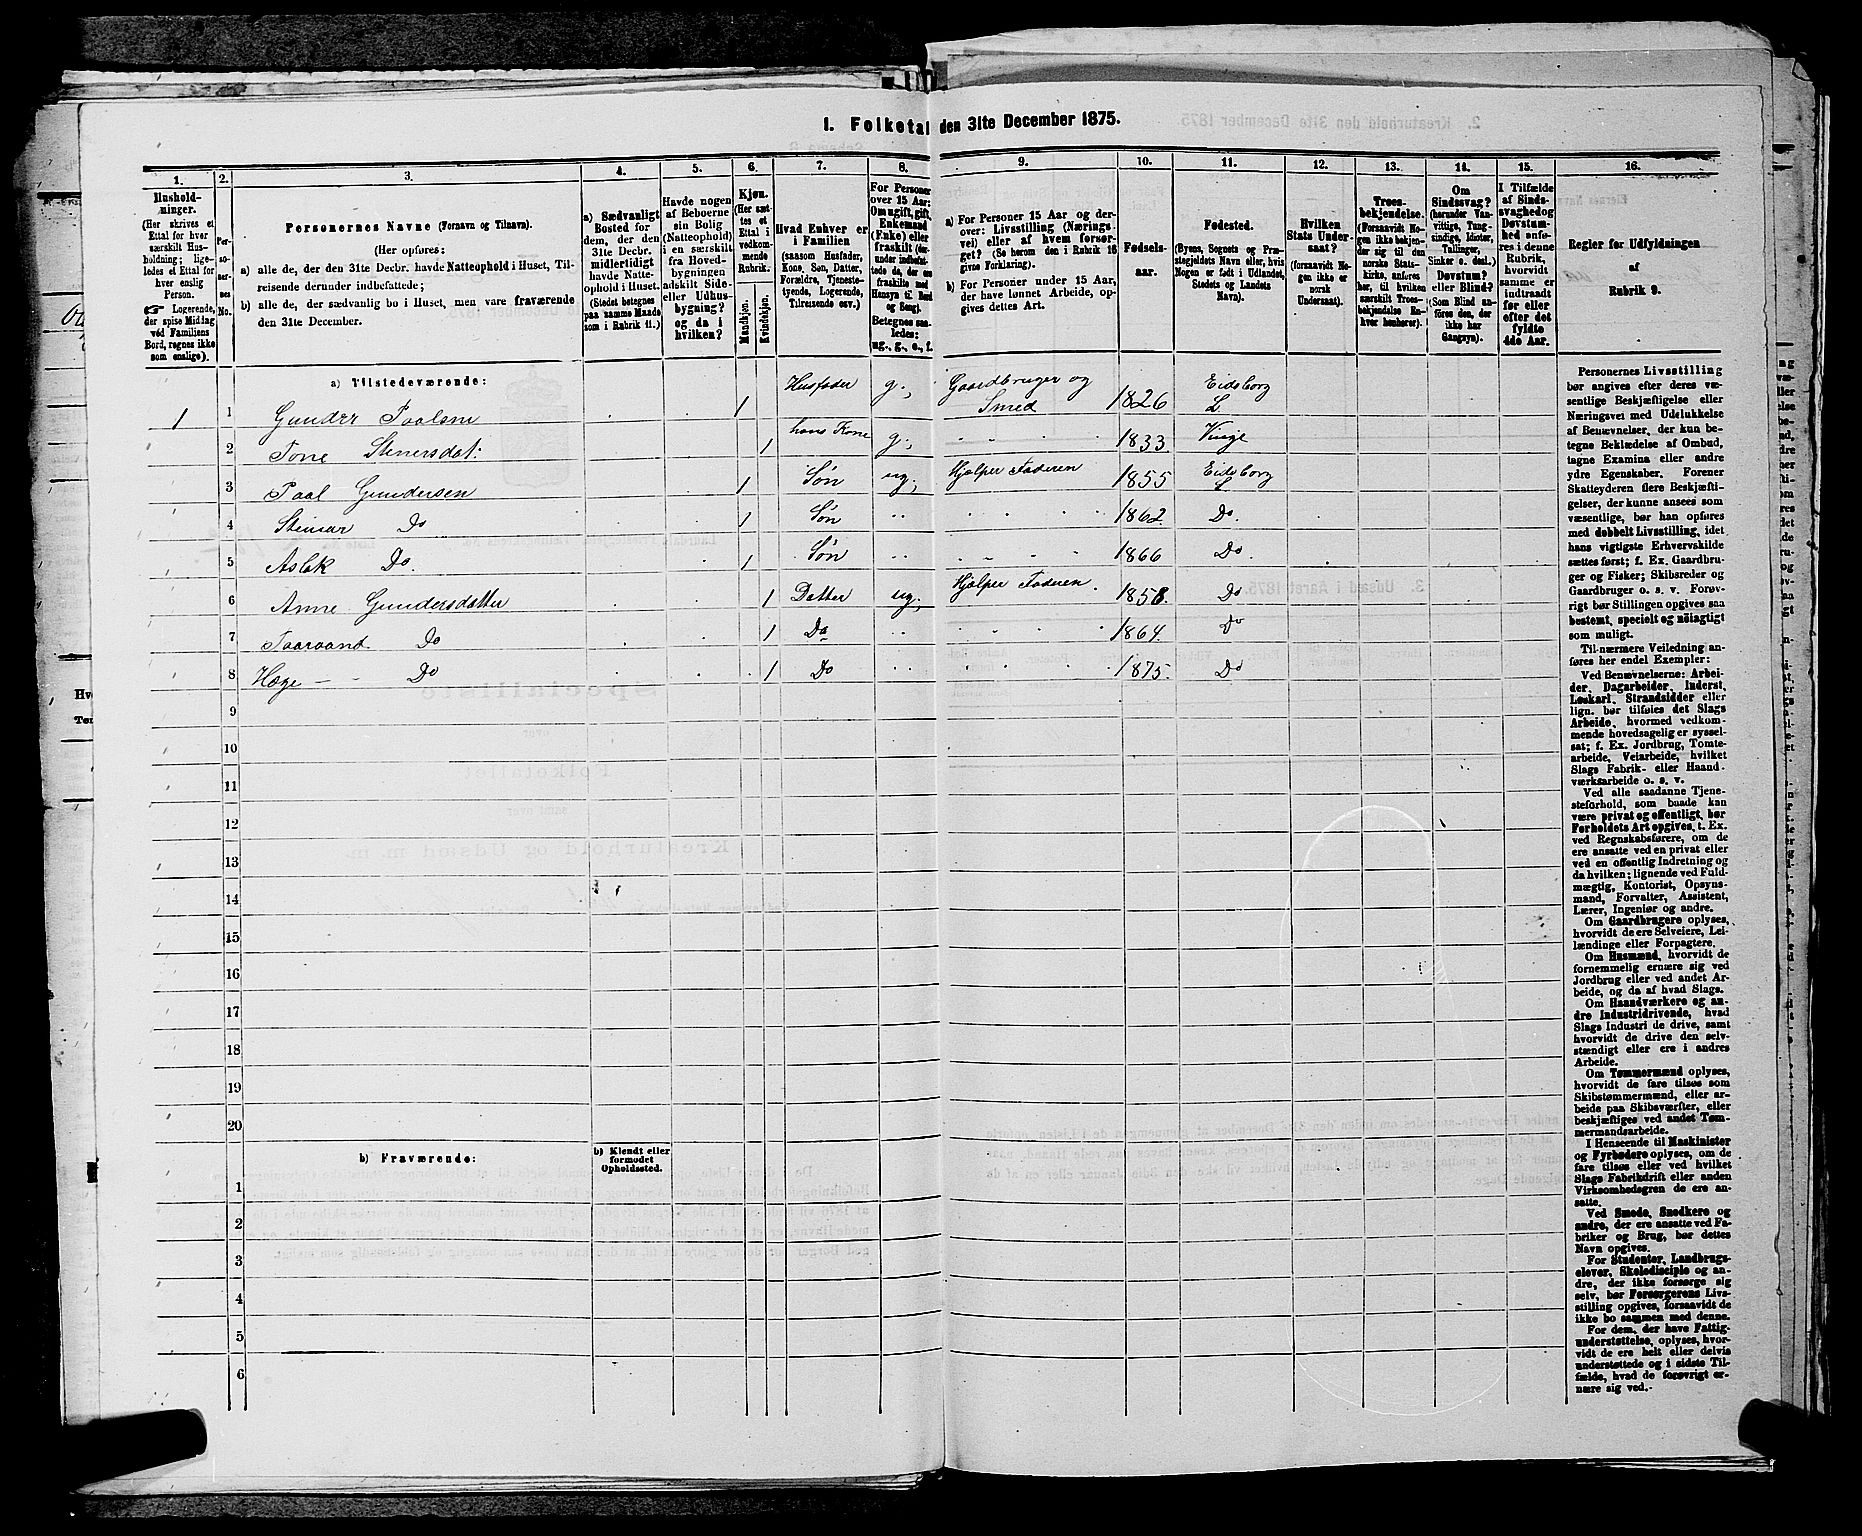 1. Folketal den 31te December 1875.
1. 2. 3. 4. 5. 6. 7. 8. 9. 10. 11. 12. 13. 14. 15. 16.
Hushold-
ninger.
(Her skrives et
Ettal for hver
særskilt Hus-
holdning; lige-
ledes et Ettal for
hver enslig
Person.
☞ Logerende,
der spise Middag
ved Familiens
Bord, regnes ikke
som enslige).
Per-
so-
ner-
nes
No.
Personernes Navne (Fornavn og Tilnavn).
(Her opføres:
a) alle de, der den 31te Decbr. havde Natteophold i Huset, Til-
reisende derunder indbefattede;
b) alle de, der sædvanlig bo i Huset, men vare fraværende
den 31te December.
a) Sædvanligt
Bosted for
dem, der den
31te Decbr.
midlertidigt
havde Natte-
ophold i Huset.
(Stedet betegnes
paa samme Maade
som i Rubrik 11.)
Havde nogen
af Beboerne
sin Bolig
(Natteophold)
i en særskilt
fra Hoved-
bygningen
adskilt Side-
eller Udhus-
bygning?
og da i
hvilken?
Kjøn.
(Her sæt-
tes et
Ettal i
vedkom-
mende
Rubrik.
Mandkjøn.
Kvindekjøn.
Hvad Enhver er
i Familien
(saasom Husfader,
Kone, Søn, Datter,
Forældre, Tjeneste-
tyende, Logerende,
Tilreisende osv.)
For Personer
over 15 Aar:
Om ugift, gift,
Enkemand
(Enke) eller
fraskilt (for-
under indbefat-
tede de, der ere
fraskilte med
Hensyn til Bord
og Seng).
Betegnes saa-
ledes:
ug., g., e., f.
a) For Personer 15 Aar og der-
over: Livsstilling (Nærings-
vei) eller af hvem forsør-
get? (Se herom den i Rubrik 16
givne Forklaring).
b) For Personer under 15 Aar,
der have lønnet Arbeide, op-
gives dettes Art.
Fødsels-
aar.
Fødested.
(Byens, Sognets og Præ-
stegjeldets Navn eller, hvis
Nogen er født i Udlandet,
Stedets og Landets
Navn).
Hvilken
Stats Under-
saat?
(forsaavidt No-
gen ikke er
norsk
Undersaat).
Troes-
bekjendelse.
(Forsaavidt No-
gen ikke bekjen-
der sig til den
norske Stats-
kirke, anføres
her, til hvilken
særskilt Troes-
bekjendelse En-
hver henhører).
Om
Sindssvag?
(herunder Van-
vittige, Tung-
sindige, Idioter,
Tullinger,
Sinker o. desl.)
Døvstum?
eller Blind?
(Som Blind an-
føres den, der
ikke har
Gangsyn).
I Tilfælde
af Sinds-
svaghed og
Døvstum-
hed anfø-
res i denne
Rubrik,
hvorvidt
samme er
indtraadt
før eller
efter det
fyldte
4de Aar.
Regler for Udfyldningen
af
Rubrik 9.
a) Tilstedeværende:
1 1 Gunder Paalsen 1 Husfader g., Gaardbruger og Smed 1826 Eidsborg L
2 Tone Stenersdat. 1 hans Kone g., " " " 1833 Vinje
3 Paal Gundersen 1 Søn ug., Hjælper Faderen 1855 Eidsborg L
4 Steinar Do 1 Søn " " " " 1862 Do.
5 Aslak Do. 1 Søn " " " " 1866 Do.
6 Anne Gundersdatter 1 Datter ug., Hjælper Faderen 1858. Do
7 Taaraand. Do 1 Do " " " " 1864. Do
8 Hæge - " Do 1 Do " " " " 1875. Do
9
10
11
12
13
14
15
16
17
18
19
20
b) Fraværende:
b) Kjendt eller
formodet
Opholdssted.
1
2
3
4
5
6
Personernes Livsstilling
bør angives efter deres væ-
sentlige Beskjæftigelse eller
Næringsvei med Udelukkelse
af Benævnelser, der kun be-
tegne Beklædelse af Ombud,
tagne Examina eller andre
ydre Egenskaber. Forener
Skatteyderen flere Beskjæfti-
gelser, der kunne ansees som
væsentlige, bør han opføres
med dobbelt Livsstilling, idet
hans vigtigste Erhvervskilde
sættes først; f. Ex. Gaardbru-
ger og Fisker; Skibsreder og
Gaardbruger o. s. v. Forøv-
rigt bør Stillingen opgives saa
bestemt, specielt og nøiagtigt
som muligt.
Til nærmere Veiledning an-
føres her endel Exempler:
Ved Benævnelserne: Arbei-
der, Dagarbeider, Inderst,
Løskarl, Strandsidder eller
lign. bør tilføies det Slags
Arbeide, hvormed vedkom-
mende hovedsagelig er syssel-
sat; f. Ex. Jordbrug, Tomte-
arbeide, Veiarbeide, hvilket
Slags Fabrik- eller Haand-
værksarbeide o. s. v.
Ved alle saadanne Tjene-
steforhold, som baade kan
være privat og offentligt, bør
Forholdets Art opgives, t. Ex.
ved Regnskabsførere, om de
ere ansatte ved en privat eller
ved en offentlig Indretning og
da hvilken; lignende ved Fuld-
mægtig, Kontorist, Opsyns-
mand, Forvalter, Assistent,
Lærer, Ingeniør og andre.
Om Gaardbrugere oplyses,
hvorvidt de ere Selveiere, Lei-
lændinge eller Forpagtere.
Om Husmænd, hvorvidt de
fornemmelig ernære sig ved
Jordbrug eller ved andet Ar-
beide, og da af hvad Slags.
Om Haandværkere og an-
dre Industridrivende, hvad
Slags Industri de drive, samt
hvorvidt de drive den selv-
stændigt eller ere i andres
Arbeide.
Om Tømmermænd oplyses,
hvorvidt de fare tilsøs som
Skibstømmermænd, eller ar-
beide paa Skibsværfter, eller
beskjæftiges ved andet Tøm-
mermandsarbeide.
I Henseende til Maskinister
og Fyrbødere oplyses, om de
fare tilsøs eller ved hvilket
Slags Fabrikdrift eller anden
Virksomhedsgren de ere an-
satte.
Ved Smede, Snedkere og
andre, der ere ansatte ved Fa-
briker og Brug, bør dettes
Navn opgives.
For Studenter, Landbrugs-
elever, Skoledisciple og an-
dre, der ikke forsørge sig
selv, bør Forsørgerens Livs-
stilling opgives, forsaavidt de
ikke bo sammen med denne.
For dem, der have Fattig-
understøttelse, oplyses, hvor-
vidt de ere helt eller delvis
understøttede og i sidste Til-
fælde, hvad de forøvrigt er-
nære sig ved.